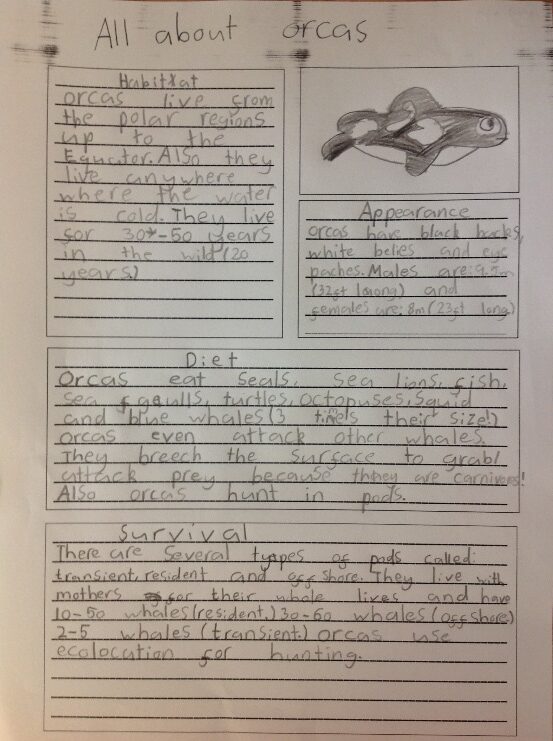 All about orcas
Habittat
orcas live from
the polar regions
up to the
Equator. Also they
live anywhere
where the water
is cold. They live
for 30-50 years
in the wild (20
years)
Appearance
orcas have black backs,
white belies and eye
paches. Males are: 9.5m
(32ft lonong) and
females are: 8m (23ft long)
Diet
Orcas eat seals, sea lions, fish,
sea gaulls, turtles, octopuses, squid
and blue whales (3 times their size!)
orcas even attack other whales.
They breech the surface to grab/
attack prey because they are carnivores!
Also orcas hunt in pods.
Survival
There are several tyapes of pods called:
transient, resident and off shore. They live with
mothers for their whole lives and have
10-50 whales (resident,) 30-60 whales (off shore)
2-5 whales (transient.) orcas use
ecolocation for hunting.